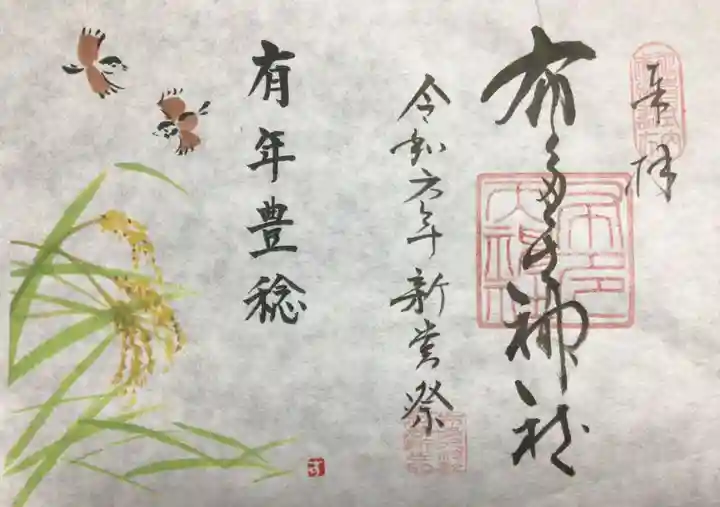 奉拝
布多天神社
令和六年新嘗祭
有年豊稔